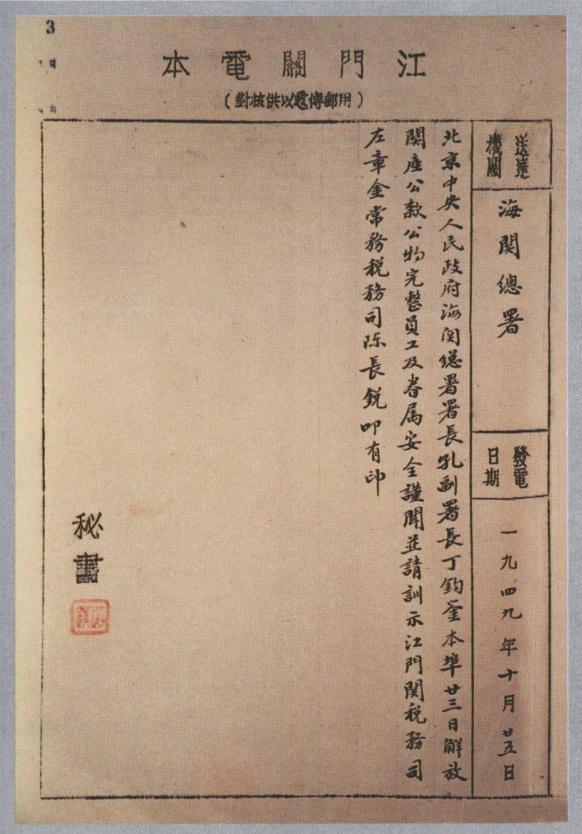 3
江門關電本
(用郵傳遞以供核對)
送達機關
海関總署
發電日期
一九四九年十月廿五日
北京中央人民政府海関總署署長孔副署長丁鈞鉴本埠廿三日解放
関產公款公物完整員工及眷属安全謹聞並請訓示江門関税務司
左章金常務税務司陈長銳叩有印
秘書